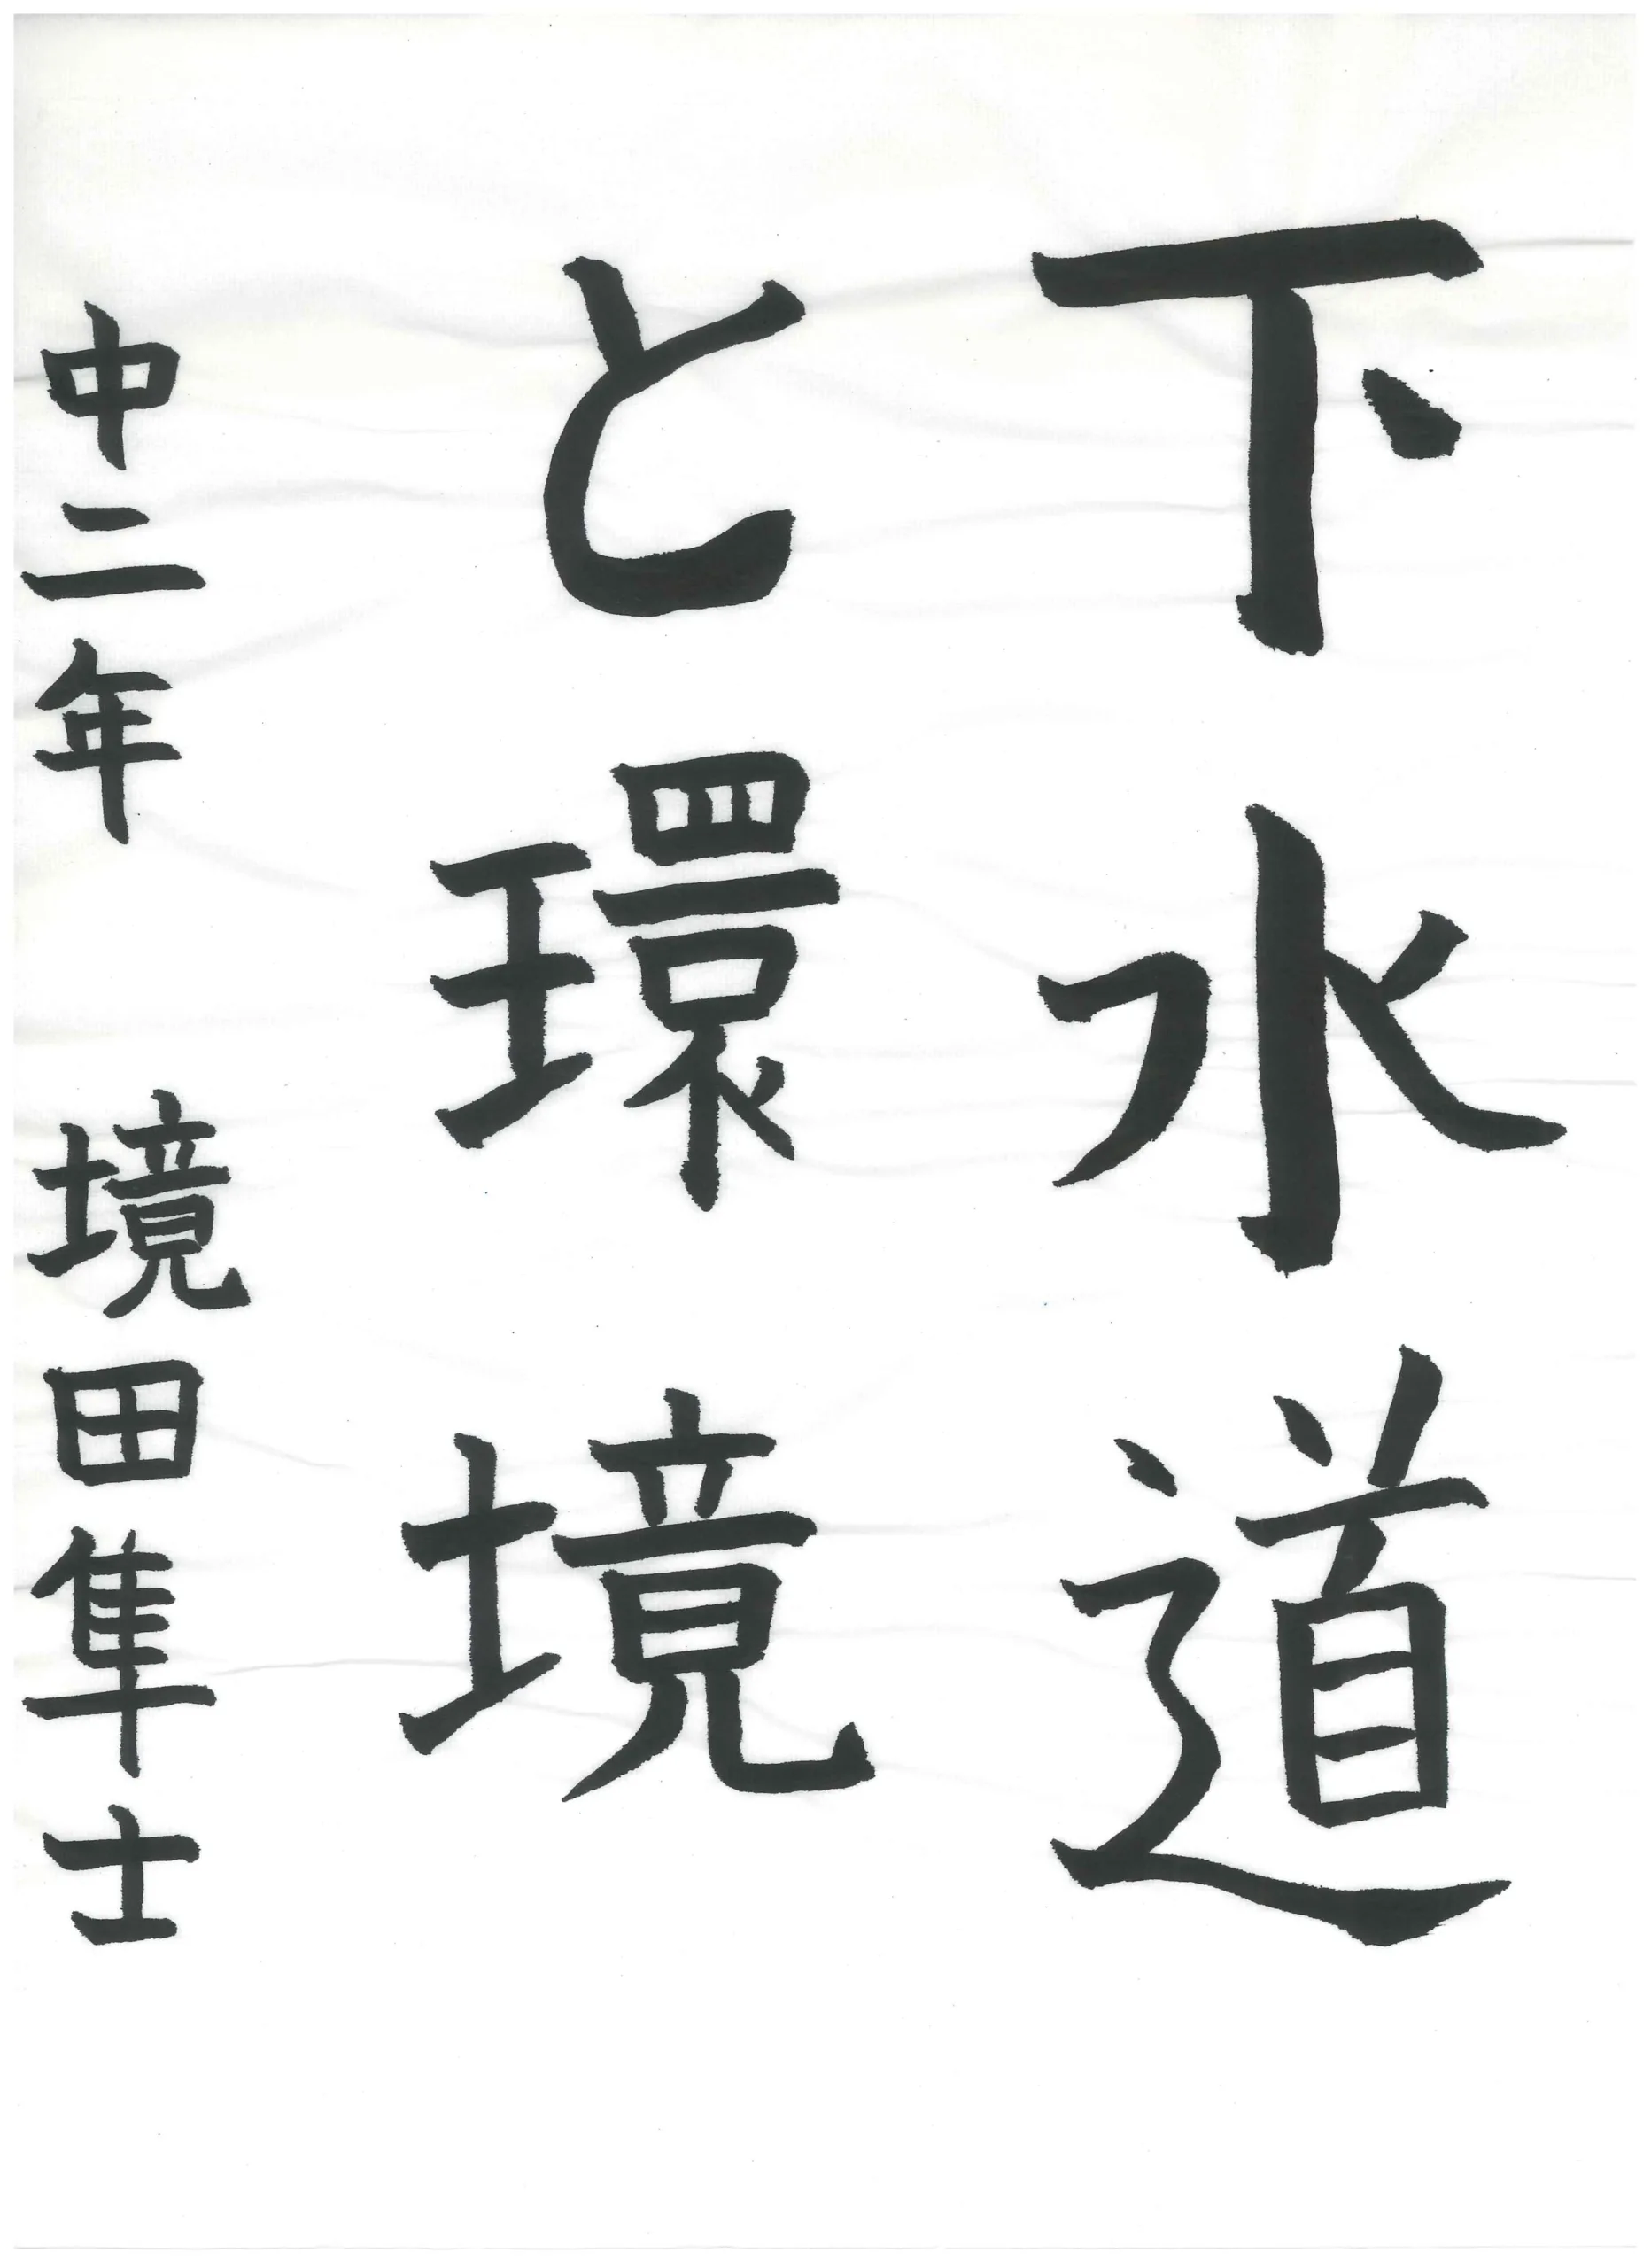 下水道
と環境
中二年 境田隼士